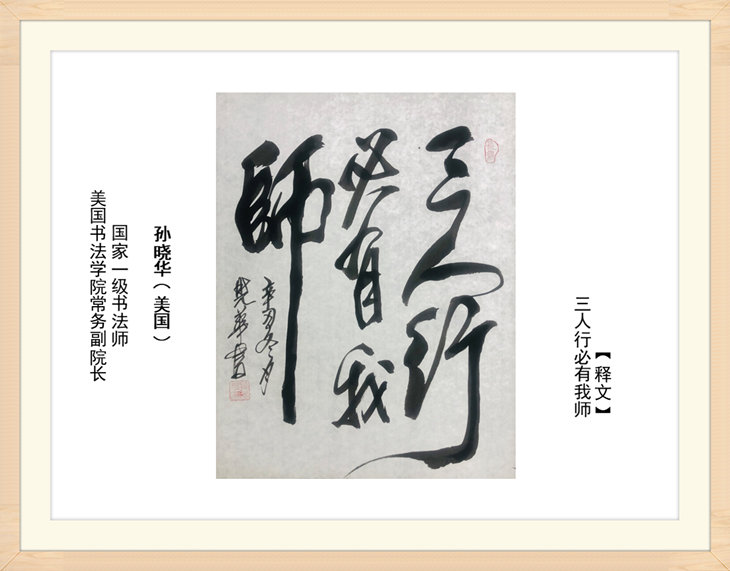 【释文】
三人行必有我师
三人行
必有我
師
辛丑冬月
晓华书
孙晓华（美国）
国家一级书法师
美国书法学院常务副院长